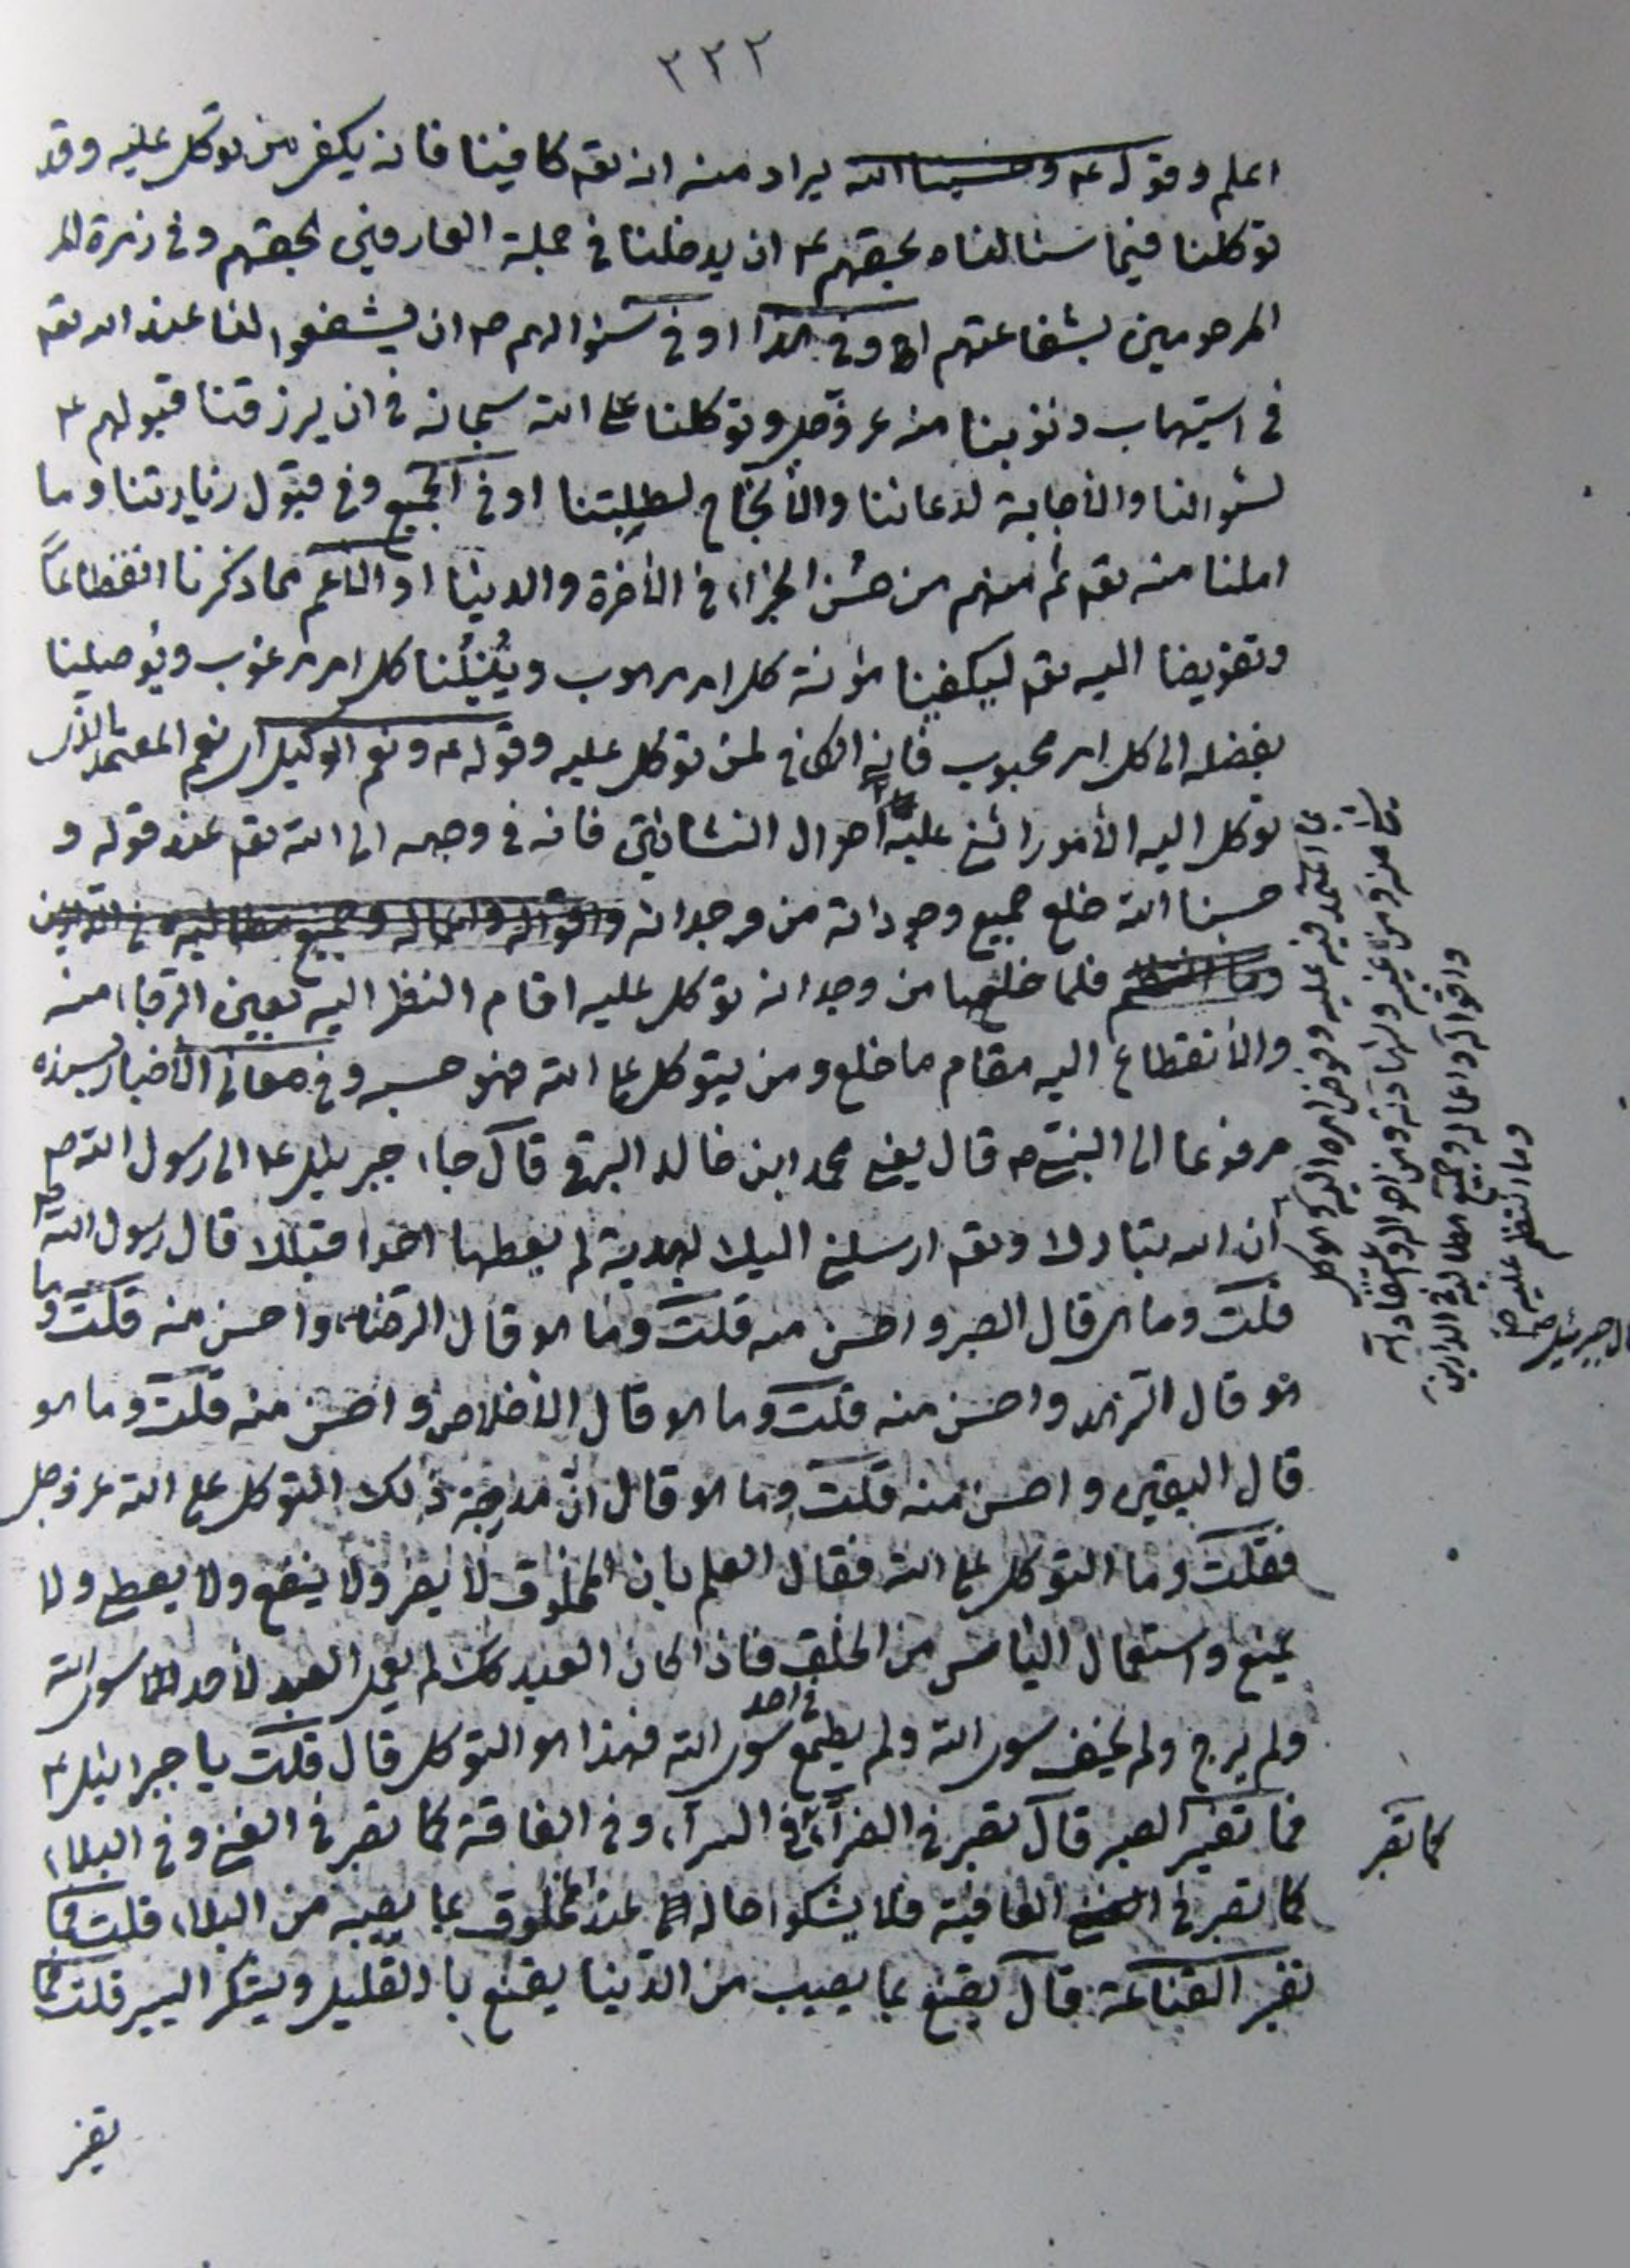 ٣٣٢
اعلم وقوله ع وحسبنا الله يراد منه انه تعم كافينا فانه يكفى من توكل عليه وقد
توكلنا فيما سئالناه بحقهم ع ان يدخلنا فى جملة العارفين بحقهم وفى زمرة المر
المرحومين بشفاعتهم وفى هذا او فى سئوالهم ص ان يشفعوا لنا عند الله تعم
فى استيهاب ذنوبنا منه عز وجل وتوكلنا على الله سبحانه فى ان يرزقنا قبولهم ع
لسئوالنا والأجابة لدعائنا والأنجاح لطلبتنا او فى الجميع وفى قبول زيارتنا وما
املنا منه تعم ثم منهم من حسن الجزاء فى الأخرة والدنيا او الأعم مما ذكرنا انقطاعاً
وتفويضا اليه تعم ليكفينا مؤنة كل امر مرهوب ويُنيلُنا كل امر مرغوب ويُوصلنا
بفضله الى كل امر محبوب فانه الكافى لمن توكل عليه وقوله ع ونعم الوكيل اى نعم المعتمد بالذى
توكل اليه الأمور اثنى عليه احوال النشاتين فانه فى وجهه الى الله تعم عند قوله و
حسبنا الله خلع جميع وجوداته من وجدانه واقواله واعماله وجميع مطالبه فى الدارين
وما انتظم فلما خلعها من وجدانه توكل عليه اقام النظر اليه بعين الرجاء منه
والأنقطاع اليه مقام ما خلع ومن يتوكل على الله فهو حسبه وفى معانى الأخبار بسنده
مرفوعا الى النبى ص قال يعنى محمد ابن خالد البرقى قال جاء جبرئيل ع الى رسول الله ص
ان الله تبارك وتعم ارسلنى اليك بهدية لم يعطها احدا قبلك قال رسول الله ص
قلت وما هى قال الصبر واحسن منه قلت وما هو قال الرضا واحسن منه قلت وما
هو قال الزهد واحسن منه قلت وما هو قال الأخلاص واحسن منه قلت وما هو
قال اليقين واحسن منه قلت وما هو قال ان مدرجة ذلك التوكل على الله عز وجل
فقلت وما التوكل على الله فقال العلم بان المخلوق لا يضر ولا ينفع ولا يعطى ولا
يمنع واستعمال الياس من الخلق فاذا كان العبد كك لم يعمل العبد لأحد سوى الله
ولم يرج ولم يخف سوى الله ولم يطمع فى احد سوى الله فهذا هو التوكل قال قلت يا جبرائيل ع
فما تفسير الصبر قال تصبر فى الضرآء فى السرآء وفى الفاقة كما تصبر فى الغنى وفى البلاء
كما تصبر فى العافية فلا يشكوا حاله عند المخلوق بما يصيبه من البلاء قلت فما
تفسير القناعة قال يقنع بما يصيب من الدنيا يقنع بالقليل ويشكر اليسير قلت فما
المعتمد فيه عليه وفوض امره اليه
واقواله واعماله وجميع مطالبه فى الدارين
وما انتظم عليه صح
قال جبرئيل
كما تصبر
تفسير